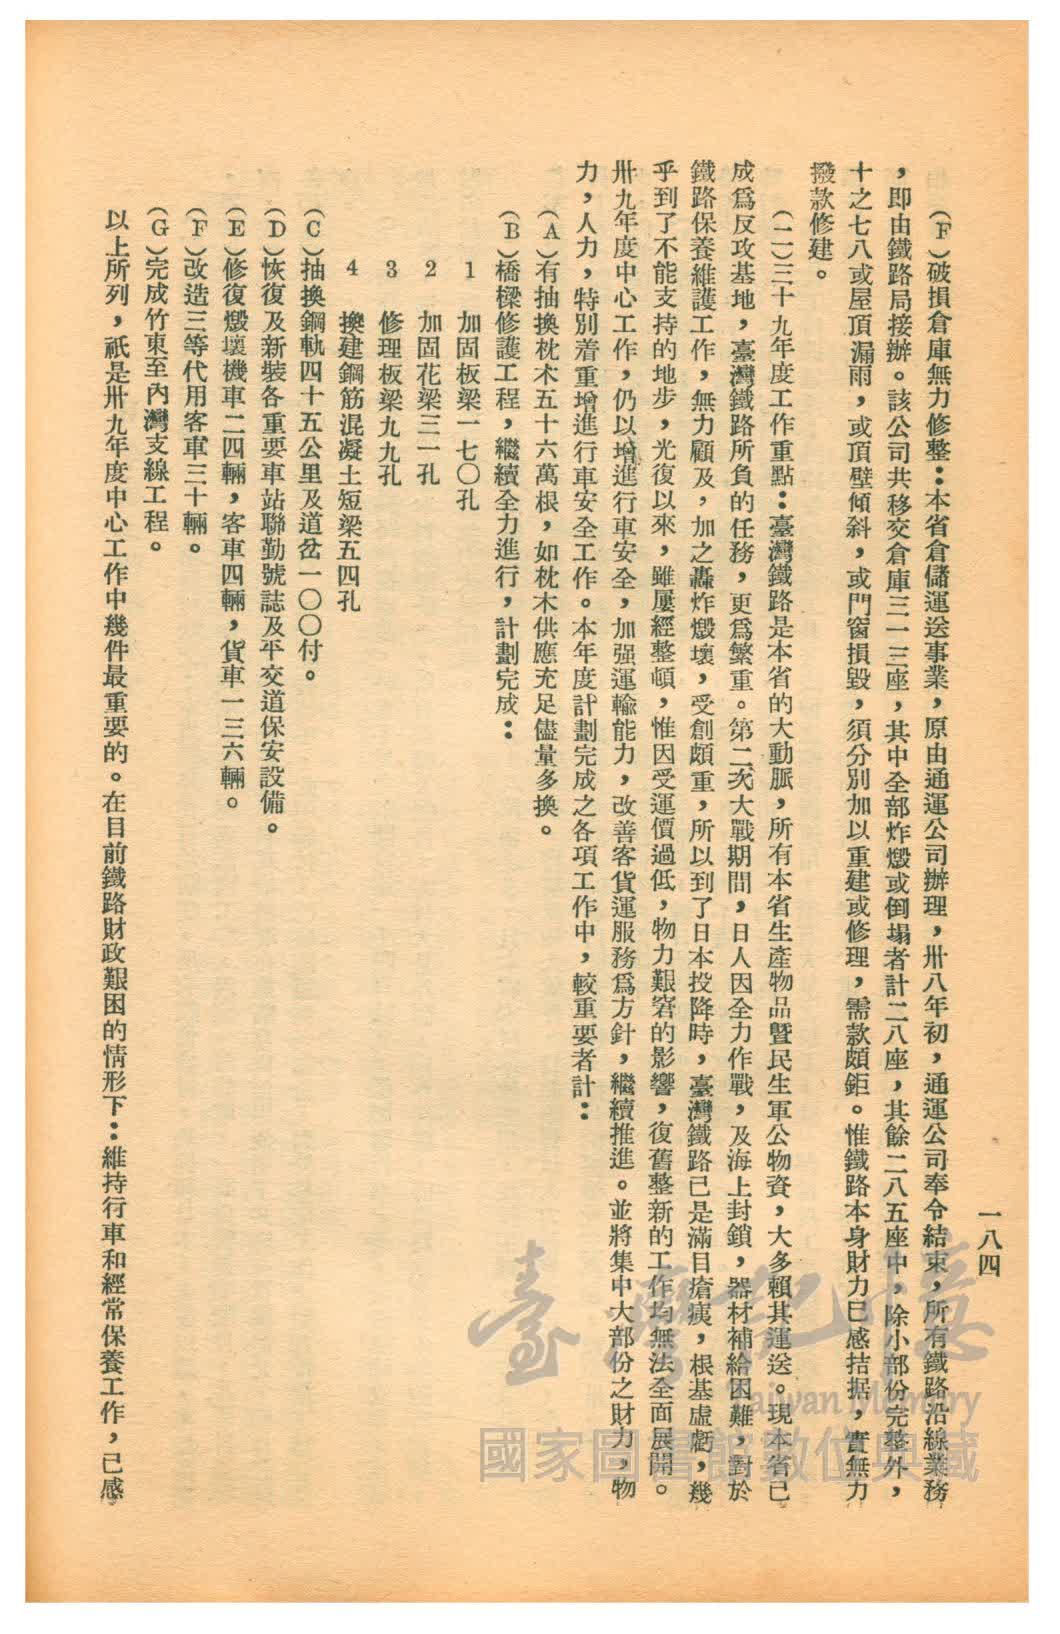 一八四
（F）破損倉庫無力修整：本省倉儲運送事業，原由通運公司辦理，卅八年初，通運公司奉令結束，所有鐵路沿線業務
，即由鐵路局接辦。該公司共移交倉庫三一三座，其中全部炸燬或倒塌者計二八座，其餘二八五座中，除小部份完整外，
十之七八或屋頂漏雨，或頂壁傾斜，或門窗損毀，須分別加以重建或修理，需款頗鉅。惟鐵路本身財力已感拮据，實無力
撥款修建。
（二）三十九年度工作重點：臺灣鐵路是本省的大動脈，所有本省生產物品暨民生軍公物資，大多賴其運送。現本省已
成爲反攻基地，臺灣鐵路所負的任務，更爲繁重。第二次大戰期間，日人因全力作戰，及海上封鎖，器材補給困難，對於
鐵路保養維護工作，無力顧及，加之轟炸燬壞，受創頗重，所以到了日本投降時，臺灣鐵路已是滿目瘡痍，根基虛虧，幾
乎到了不能支持的地步，光復以來，雖屢經整頓，惟因受運價過低，物力艱窘的影響，復舊整新的工作均無法全面展開。
卅九年度中心工作，仍以增進行車安全，加强運輸能力，改善客貨運服務爲方針，繼續推進。並將集中大部份之財力，物
力，人力，特別着重增進行車安全工作。本年度計劃完成之各項工作中，較重要者計：
（A）有抽換枕木五十六萬根，如枕木供應充足儘量多換。
（B）橋樑修護工程，繼續全力進行，計劃完成：
1　加固板梁一七〇孔
2　加固花梁三一孔
3　修理板梁九九孔
4　換建鋼筋混凝土短梁五四孔
（C）抽換鋼軌四十五公里及道岔一〇〇付。
（D）恢復及新裝各重要車站聯動號誌及平交道保安設備。
（E）修復燬壞機車二四輛，客車四輛，貨車一三六輛。
（F）改造三等代用客車三十輛。
（G）完成竹東至內灣支線工程。
以上所列，祇是卅九年度中心工作中幾件最重要的。在目前鐵路財政艱困的情形下：維持行車和經常保養工作，已感
臺灣記憶
Taiwan Memory
國家圖書館數位典藏